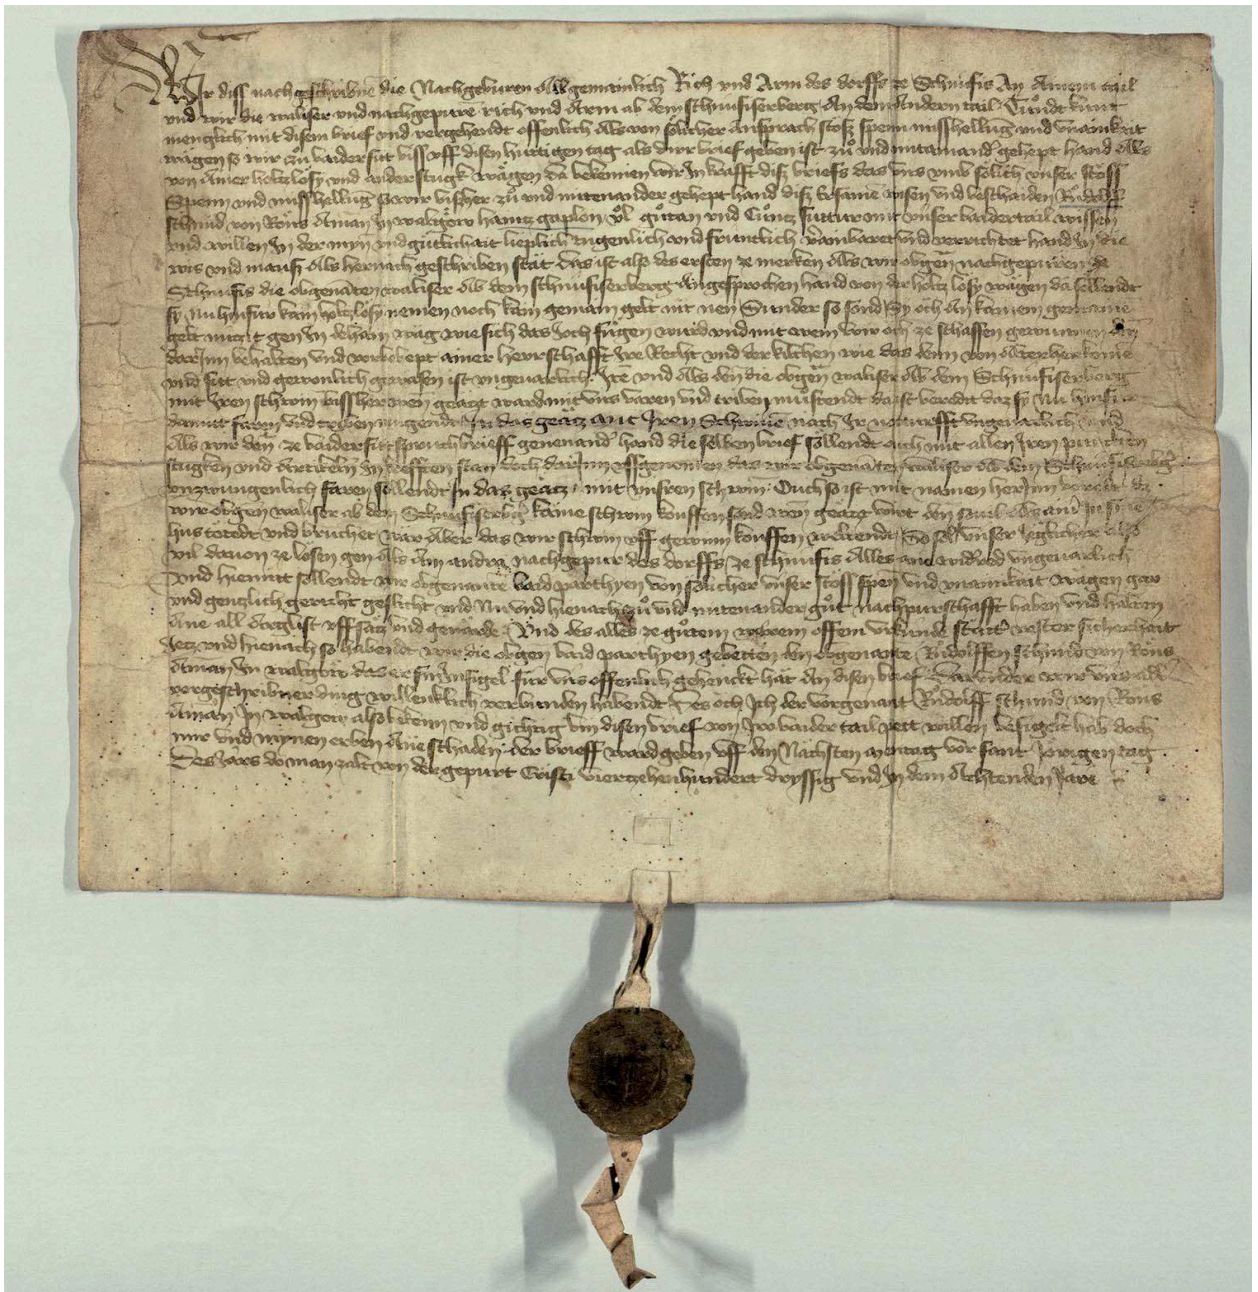 Wir diss nachgeschribne die Nachgeburen All gemainlich Rich vnd Arm des dorffs ze Schnüfis An Ainem tail
vnd wir die walliser vnd nachgepure rich vnd Arm ab dem schnüfiserberg An dem Andern tail Tůndt kunt
menglich mit disem brief vnd vergehendt offenlich Als von sölicher ansprach stöss spenn misshellung vnd vnainkait
wägen so wir zů baidersit biss vff disen hüttigen tag als der brief geben ist zů vnd mitainand gehept hand Als
von Ainer holtzlosy vnd ander stugk wägen Da bekennen wir In krafft diss briefs das vns vmb sölich vnser stöss
Spenn vnd misshellung so wir bissher zů vnd mitenander gehept hand diss Ersame wisen vnd beschaiden Růdolff
schmid von Röns Aman In walgöw hanss gaplon vnd Cůntz mit vnser baidertail wissen
vnd willen In der mynn vnd gůtlichait lieplich tugenlich vnd fruntlich verainbaret vnd verrichtet hand In die
wis vnd mauss Als hernach geschriben stät das ist also des ersten ze merken Als wir obgen nachgepuren ze
Schnüfis die obgenäten walliser Ab dem schnüfiserberg Angesprochen hand von der holtzlosy wägen da sollendt
sy nu hinfür kain holtzlosy nemen noch kain gemain gelt mit nen Sunder so sond Sy och An kainem gemaine
gelt nichtz gen In dehain wäg wie sich das Joch fügen wurd vnd mit wem wir och ze schaffen gewunnen
dar Inn behalten vnd vorbehept ainer herrschafft Ire Recht vnd der kilchen wie das denn von Alterherkome
vnd sitt vnd gewonlich gewäsen ist vngeuarlich Itē vnd Als den die obgen walliser Ab dem Schnüfiserberg
mit Iren schwin bissher wen geätz ward mit vns varen vnd triben müstendt da ist beredt daz sy nu hinfür
damit faren vnd triben mugendt In das geätz mit Iren Schwine nach Ir notturfft vngeuarlich vnd
Als wir den ze baidersitt spruchbrieff genenand hand die selben brief söllendt och mit allen Iren puncten
stugken vnd Artikeln In krefften stan doch dar Inn vssgenomen das wir obgenäten walliser Ab dem Schnüfiserberg
vnzwungenlich faren söllendt In das geätz mit vnsren schwin Ouch so ist mit namen her Inn beredt dz
wir obgen walliser ab dem Schnüfiserbg kaine schwin kouffen sond wen geätz wirt den souil Als ainr In sine
hus tötedt vnd bruchet wär Aber das wir schwin vff gewinn kouffen wöltendt So sol vnser ieglicher Als
vil dauon ze losen gen Als Ain andra nachgepur des dorffs ze schnüfis Alles ane widred vngeuarlich
vnd hiemitt söllendt wir obgenante baid parthyen von sölicher vnser stöss spen vnd vnainkait wägen gar
vnd gentzlich gericht geslicht vnd Nu vnd hienach zů vnd mitenander gůt nachpurschafft haben vnd halten
Ane all Arglist vffsatz vnd genärde Vnd des alles ze gůtem wärem offem vrkünde stäter vester sicherhait
Jetz vnd hienach so habendt wir die obgen baid parthyen gebetten den obgenante Rüdolffen schmid von Röns
Aman In walgöw das er sin Insigel für vns offenlich gehenckt hat An disen brief Darvnder wir vns all
vorgeschribner ding willenklich verbunden habendt Des och Ich der vorgenant Růdolff schmid von Röns
Aman In walgöw also bekenn vnd gichtig bin disen brief von Jro baider tail bett willen besigelt hab doch
mir vnd mynen erben Ane schaden der brieff ward geben vff den Nächsten mentag vor sant Jörigen tag
Des Jars do man zalt von der gepurt Cristi viertzehenhundert dryssig vnd In dem Achtenden Jare